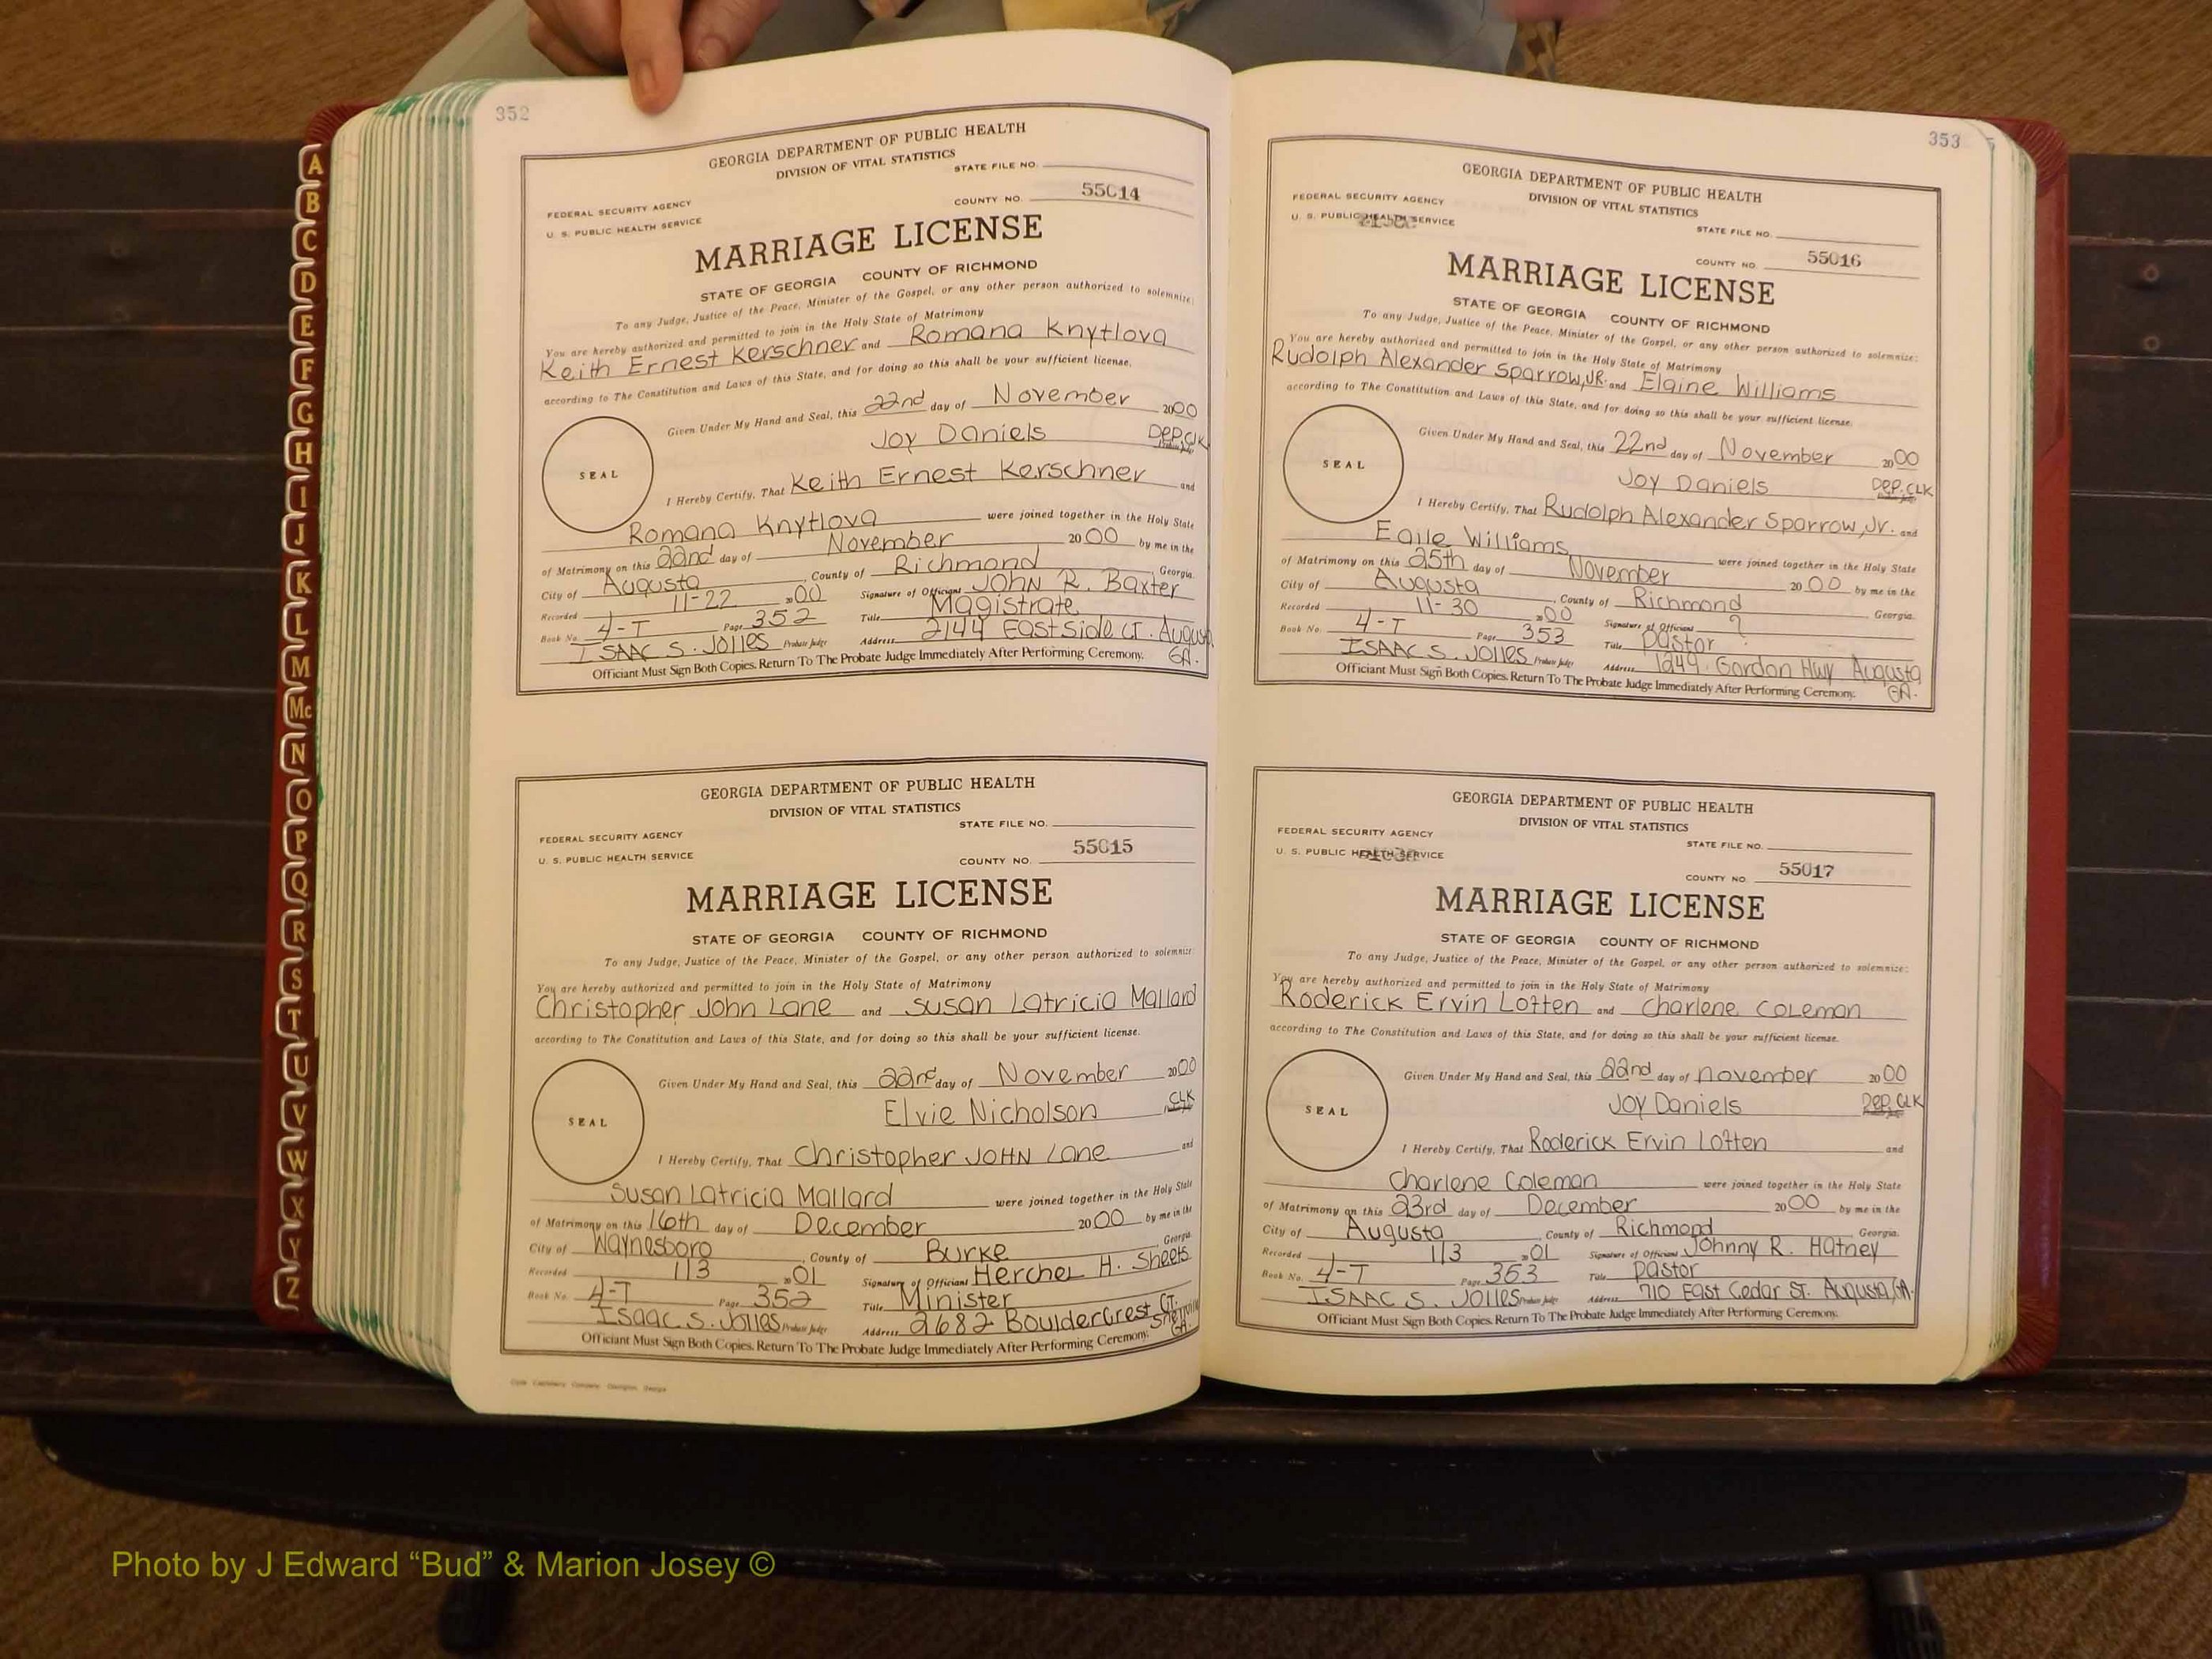 A
B
C
D
E
F
G
H
I
J
K
L
M
Mc
N
O
P
Q
R
S
T
U
V
W
X
Y
Z
352
GEORGIA DEPARTMENT OF PUBLIC HEALTH
DIVISION OF VITAL STATISTICS
STATE FILE NO.
FEDERAL SECURITY AGENCY
U. S. PUBLIC HEALTH SERVICE
COUNTY NO. 55014
MARRIAGE LICENSE
STATE OF GEORGIA COUNTY OF RICHMOND
To any Judge, Justice of the Peace, Minister of the Gospel, or any other person authorized to solemnize:
You are hereby authorized and permitted to join in the Holy State of Matrimony
Keith Ernest Kerschner and Romana Knytlova
according to The Constitution and Laws of this State, and for doing so this shall be your sufficient license.
Given Under My Hand and Seal, this 22nd day of November 2000
Joy Daniels DEP. CLK
SEAL
I Hereby Certify, That Keith Ernest Kerschner and
Romana Knytlova were joined together in the Holy State
of Matrimony on this 22nd day of November 2000 by me in the
City of Augusta, County of Richmond, Georgia.
Recorded 11-22 2000 Signature of Officiant JOHN R. Baxter
Book No. 4-T Page 352 Title Magistrate
ISAAC S. JOLLES Probate Judge Address 2144 Eastside CT. Augusta GA.
Officiant Must Sign Both Copies. Return To The Probate Judge Immediately After Performing Ceremony.
GEORGIA DEPARTMENT OF PUBLIC HEALTH
DIVISION OF VITAL STATISTICS
STATE FILE NO.
FEDERAL SECURITY AGENCY
U. S. PUBLIC HEALTH SERVICE
COUNTY NO. 55015
MARRIAGE LICENSE
STATE OF GEORGIA COUNTY OF RICHMOND
To any Judge, Justice of the Peace, Minister of the Gospel, or any other person authorized to solemnize:
You are hereby authorized and permitted to join in the Holy State of Matrimony
Christopher John Lane and Susan Latricia Mallard
according to The Constitution and Laws of this State, and for doing so this shall be your sufficient license.
Given Under My Hand and Seal, this 22nd day of November 2000
Elvie Nicholson CLK
SEAL
I Hereby Certify, That Christopher JOHN Lane and
Susan Latricia Mallard were joined together in the Holy State
of Matrimony on this 16th day of December 2000 by me in the
City of Waynesboro, County of Burke, Georgia.
Recorded 1/3 2001 Signature of Officiant Herchel H. Sheets
Book No. 4-T Page 352 Title Minister
Isaac S. Jolles Probate Judge Address 2682 BoulderCrest CT. GA.
Officiant Must Sign Both Copies. Return To The Probate Judge Immediately After Performing Ceremony.
353
GEORGIA DEPARTMENT OF PUBLIC HEALTH
DIVISION OF VITAL STATISTICS
FEDERAL SECURITY AGENCY
U. S. PUBLIC HEALTH SERVICE
STATE FILE NO.
COUNTY NO. 55016
MARRIAGE LICENSE
STATE OF GEORGIA COUNTY OF RICHMOND
To any Judge, Justice of the Peace, Minister of the Gospel, or any other person authorized to solemnize:
You are hereby authorized and permitted to join in the Holy State of Matrimony
Rudolph Alexander Sparrow, JR. and Elaine Williams
according to The Constitution and Laws of this State, and for doing so this shall be your sufficient license.
Given Under My Hand and Seal, this 22nd day of November 2000
Joy Daniels DEP. CLK
SEAL
I Hereby Certify, That Rudolph Alexander Sparrow, Jr. and
Eaile Williams were joined together in the Holy State
of Matrimony on this 25th day of November 2000 by me in the
City of Augusta, County of Richmond Georgia.
Recorded 11-30 2000 Signature of Officiant ?
Book No. 4-T Page 353 Title Pastor
ISAAC S. JOLLES Probate Judge Address 1249 Gordon Hwy Augusta GA.
Officiant Must Sign Both Copies. Return To The Probate Judge Immediately After Performing Ceremony.
GEORGIA DEPARTMENT OF PUBLIC HEALTH
DIVISION OF VITAL STATISTICS
FEDERAL SECURITY AGENCY
U. S. PUBLIC HEALTH SERVICE
STATE FILE NO.
COUNTY NO. 55017
MARRIAGE LICENSE
STATE OF GEORGIA COUNTY OF RICHMOND
To any Judge, Justice of the Peace, Minister of the Gospel, or any other person authorized to solemnize:
You are hereby authorized and permitted to join in the Holy State of Matrimony
Roderick Ervin Lotten and Charlene Coleman
according to The Constitution and Laws of this State, and for doing so this shall be your sufficient license.
Given Under My Hand and Seal, this 22nd day of November 2000
Joy Daniels DEP. CLK
SEAL
I Hereby Certify, That Roderick Ervin Lotten and
Charlene Coleman were joined together in the Holy State
of Matrimony on this 23rd day of December 2000 by me in the
City of Augusta, County of Richmond, Georgia.
Recorded 1/3 2001 Signature of Officiant Johnny R. Hatney
Book No. 4-T Page 353 Title Pastor
ISAAC S. JOLLES Probate Judge Address 710 East Cedar St. Augusta, GA.
Officiant Must Sign Both Copies. Return To The Probate Judge Immediately After Performing Ceremony.
Photo by J Edward “Bud” & Marion Josey ©